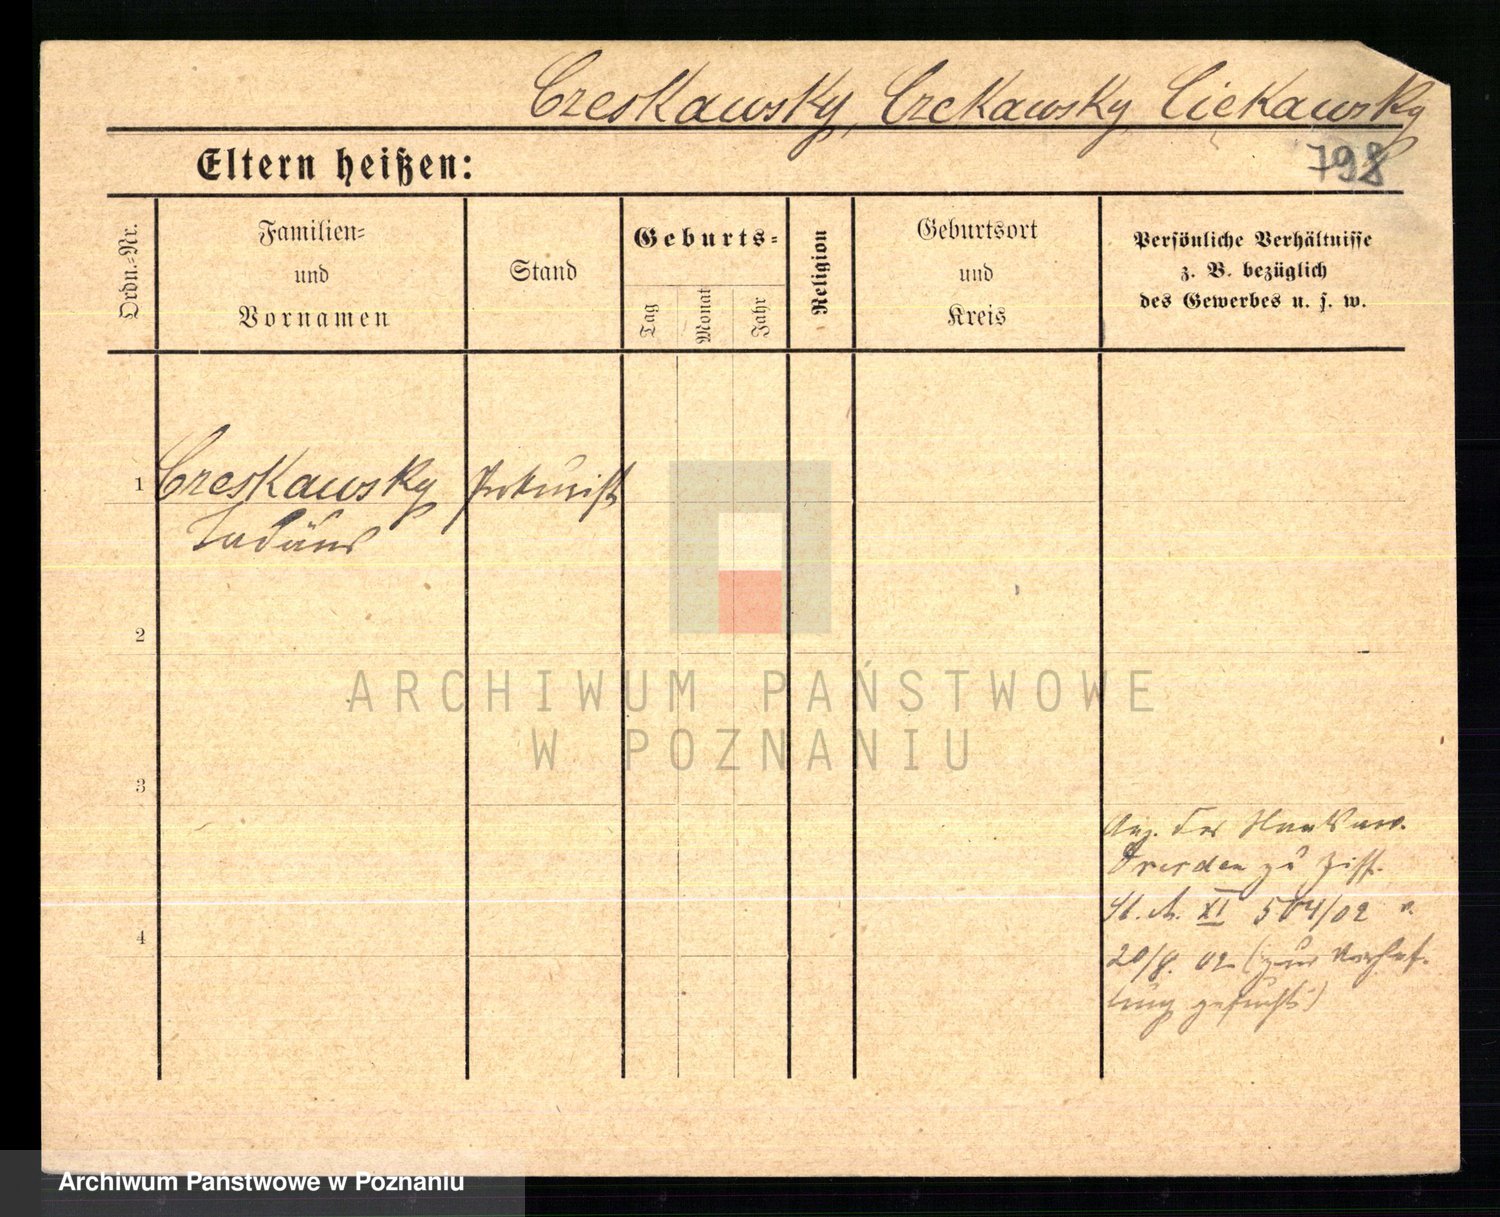 Czeskawsky, Czekawsky Ciekawsky
Eltern heißen:
798
Ordn.-Nr.
Familien-
und
Vornamen
Stand
Geburts-
Tag
Monat
Jahr
Religion
Geburtsort
und
Kreis
Persönliche Verhältnisse
z. B. bezüglich
des Gewerbes u. s. w.
1
Czeskawsky
Prokurist
Tadäus
2
ARCHIWUM PAŃSTWOWE
W POZNANIU
3
Anz. der Staatsanw.
Dresden zu Ziff.
St. A. XI 504/02 v.
4
20/8. 02 (zur Verhaf-
tung gesucht)
Archiwum Państwowe w Poznaniu